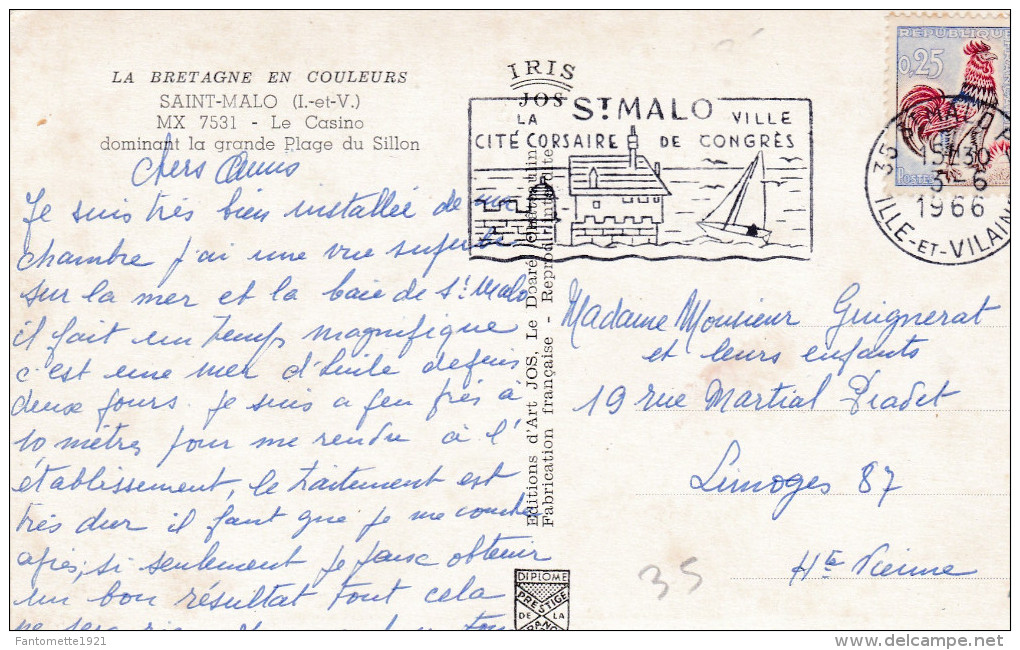 LA BRETAGNE EN COULEURS
SAINT-MALO (I.-et-V.)
MX 7531 - Le Casino
dominant la grande Plage du Sillon
Chers Amis
Je suis très bien installée de ma
chambre j'ai une vue superbe
sur la mer et la baie de St Malo
il fait un temps magnifique
c'est une mer d'huile depuis
deux jours. Je suis a peu près à
10 mètres pour me rendre à l'
établissement, le traitement est
très dur il faut que je me couche
après, si seulement je peux obtenir
un bon résultat tout cela
ne sera rien
IRIS
JOS
LA ST MALO VILLE
CITÉ CORSAIRE DE CONGRÈS
REPUBLIQUE
0,25
POSTES
35 ST MALO
15H30
3-6
1966
ILLE-ET-VILAINE
Editions d'Art JOS, Le Doaré, Châteaulin
Fabrication française - Reproduction interdite
Madame Monsieur Guignerat
et leurs enfants
19 rue Martial Pradet
Limoges 87
Hte Vienne
35
DIPLOME
PRESTIGE
DE LA
Fantomette1921
www.delcampe.net